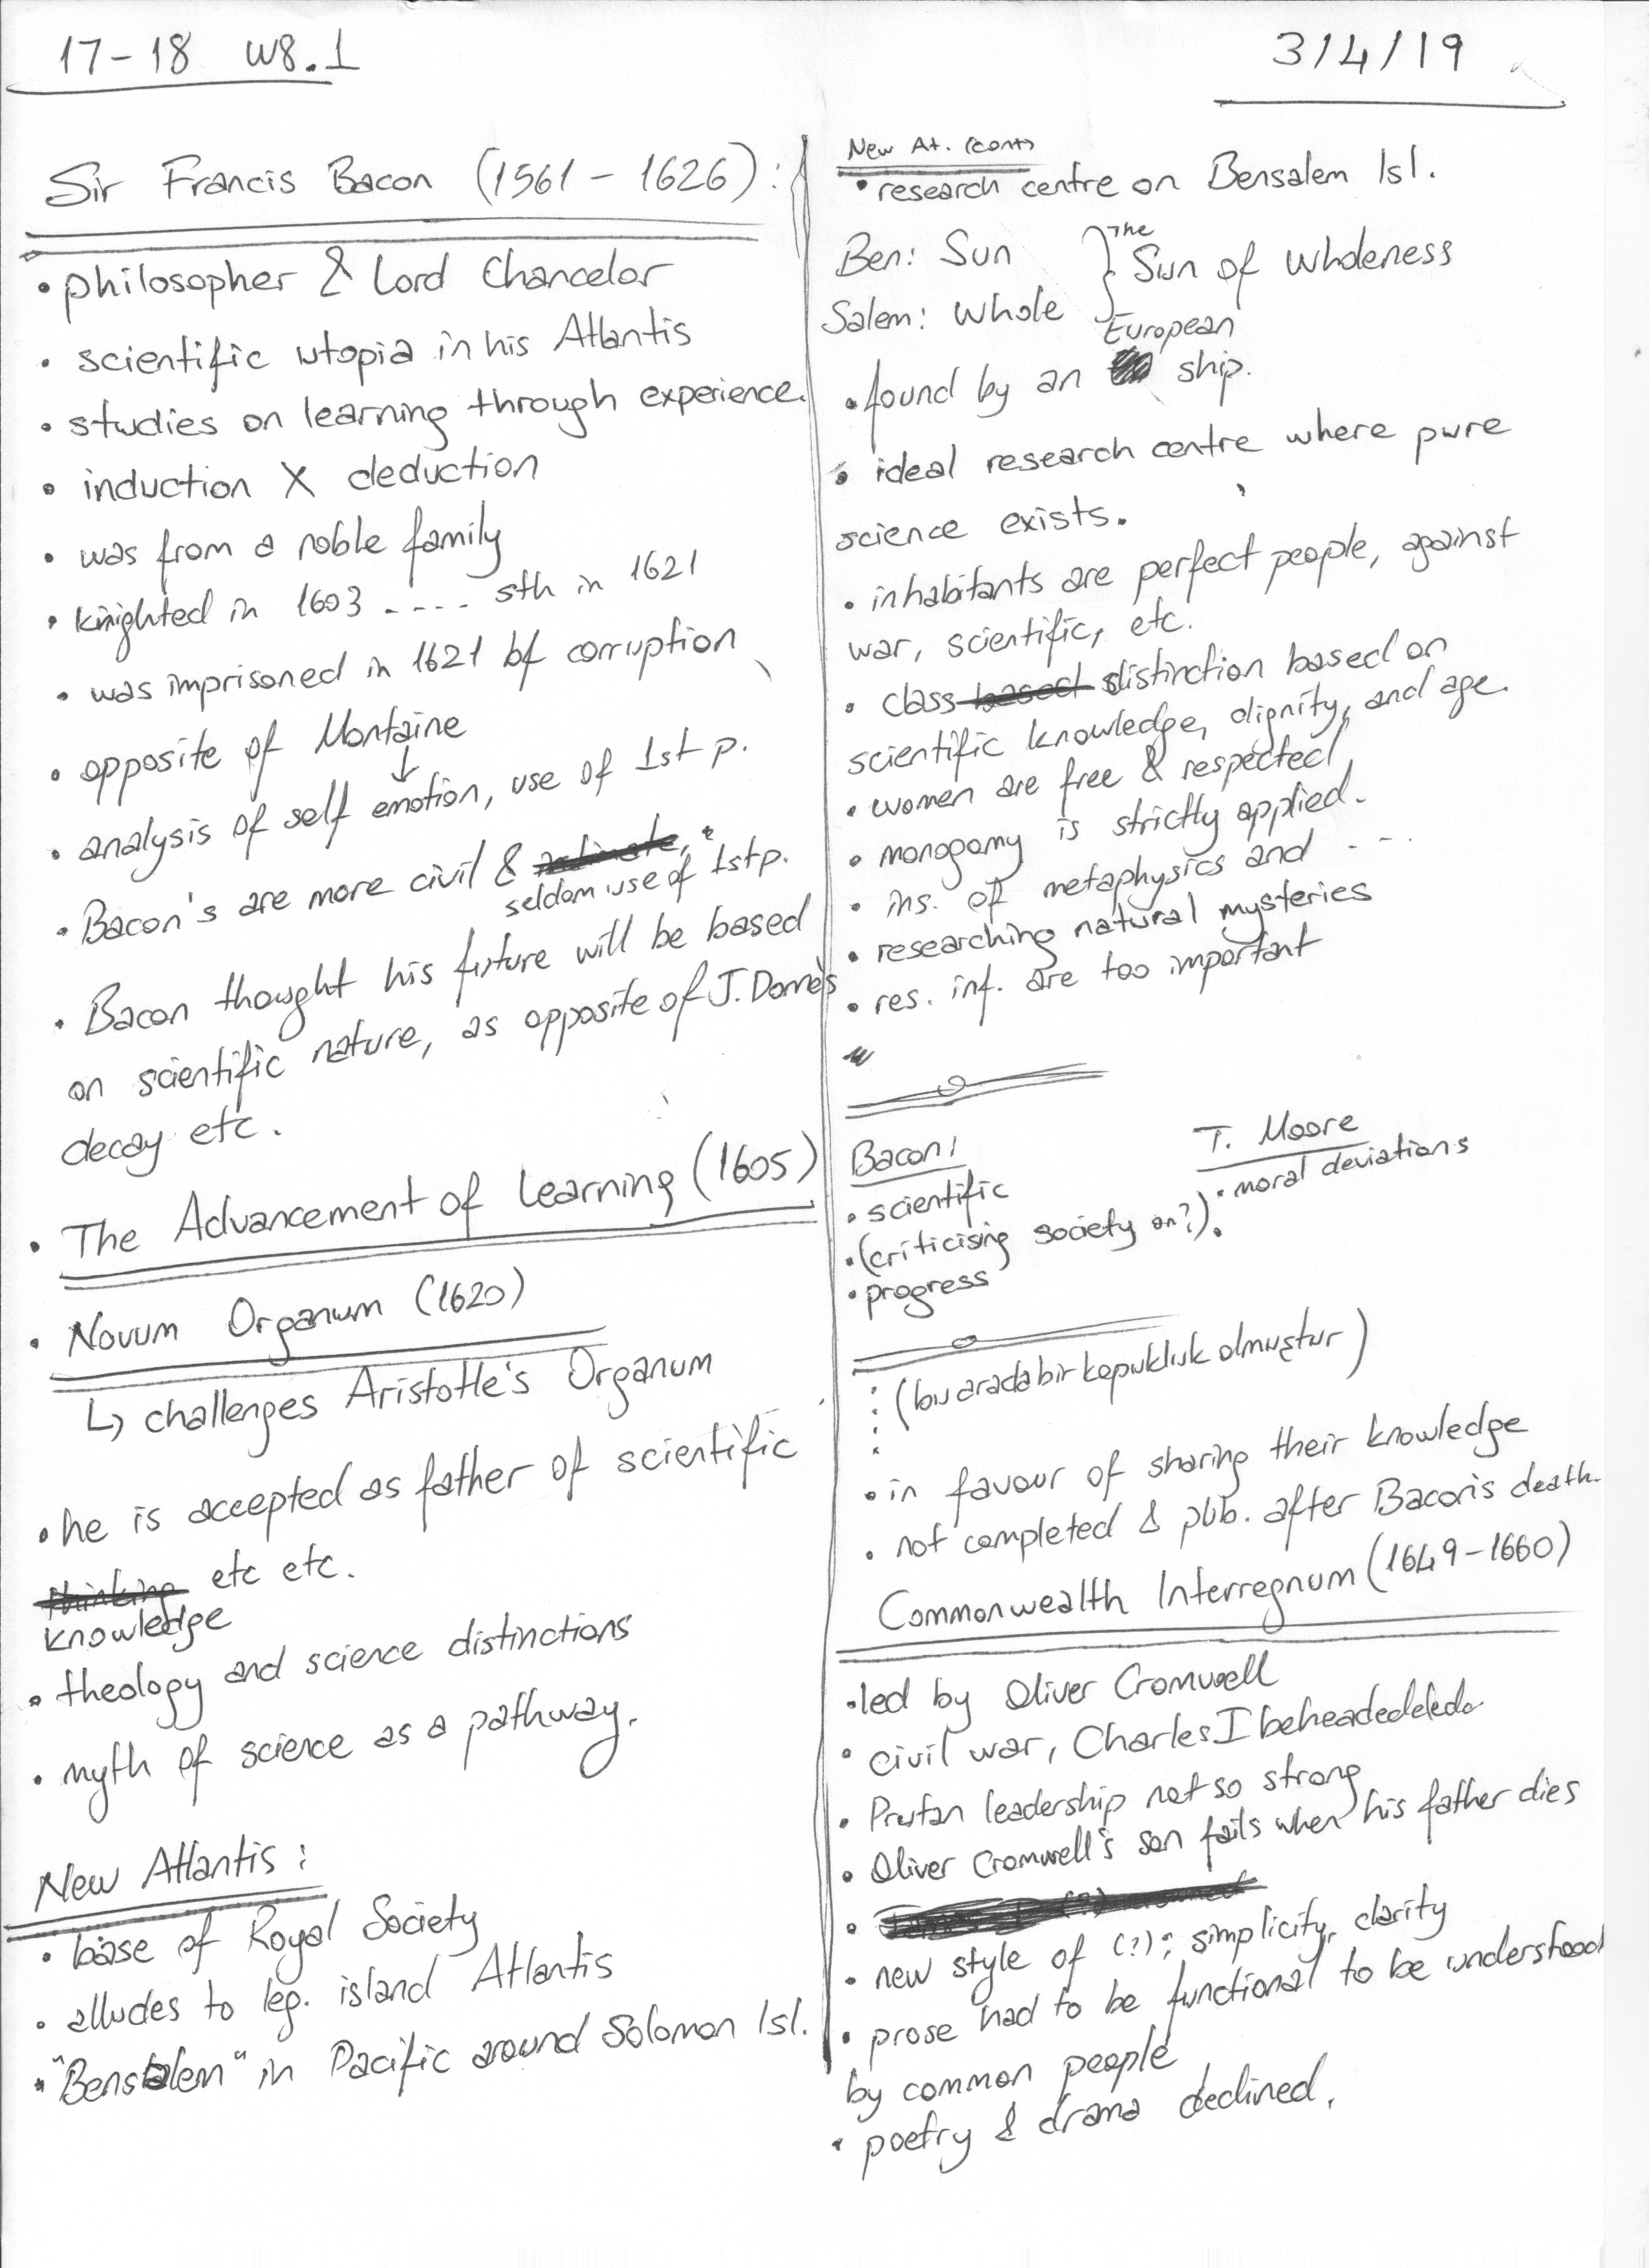 17-18 W8.1
3/4/19
Sir Francis Bacon (1561 - 1626):
• philosopher & Lord Chancelor
• scientific utopia in his Atlantis
• studies on learning through experience.
• induction X deduction
• was from a noble family
• knighted in 1603 ---- sth in 1621
• was imprisoned in 1621 bf corruption
• opposite of Montaine
↓
• analysis of self emotion, use of 1st p.
• Bacon's are more civil &
seldom use of 1st p.
• Bacon thought his future will be based
on scientific nature, as opposite of J. Donne's
decay etc.
• The Advancement of Learning (1605)
• Novum Organum (1620)
↳ challenges Aristotle's Organum
• he is accepted as father of scientific
thinking etc etc.
knowledge
• theology and science distinctions
• myth of science as a pathway.
New Atlantis:
• base of Royal Society
• alludes to leg. island Atlantis
• "Bensalem" in Pacific around Solomon Isl.
New At. (cont)
• research centre on Bensalem Isl.
Ben: Sun
Salem: Whole
} The Sun of Wholeness
European
• found by an ship.
• ideal research centre where pure
science exists.
• inhabitants are perfect people, against
war, scientific, etc.
• class based distinction based on
scientific knowledge, dignity, and age.
• women are free & respected
• monogamy is strictly applied.
• ins. of metaphysics and - - -
• researching natural mysteries
• res. inf. are too important
Bacon:
• scientific
• (criticising society on?)
• progress
T. Moore
• moral deviations
•
(bu arada bir kopukluk olmuştur)
• in favour of sharing their knowledge
• not completed & pub. after Bacon's death.
Commonwealth Interregnum (1649-1660)
• led by Oliver Cromwell
• civil war, Charles I beheadededed
• leadership not so strong
• Oliver Cromwell's son fails when his father dies
•
• new style of (?); simplicity, clarity
• prose had to be functional to be understood
by common people
• poetry & drama declined.